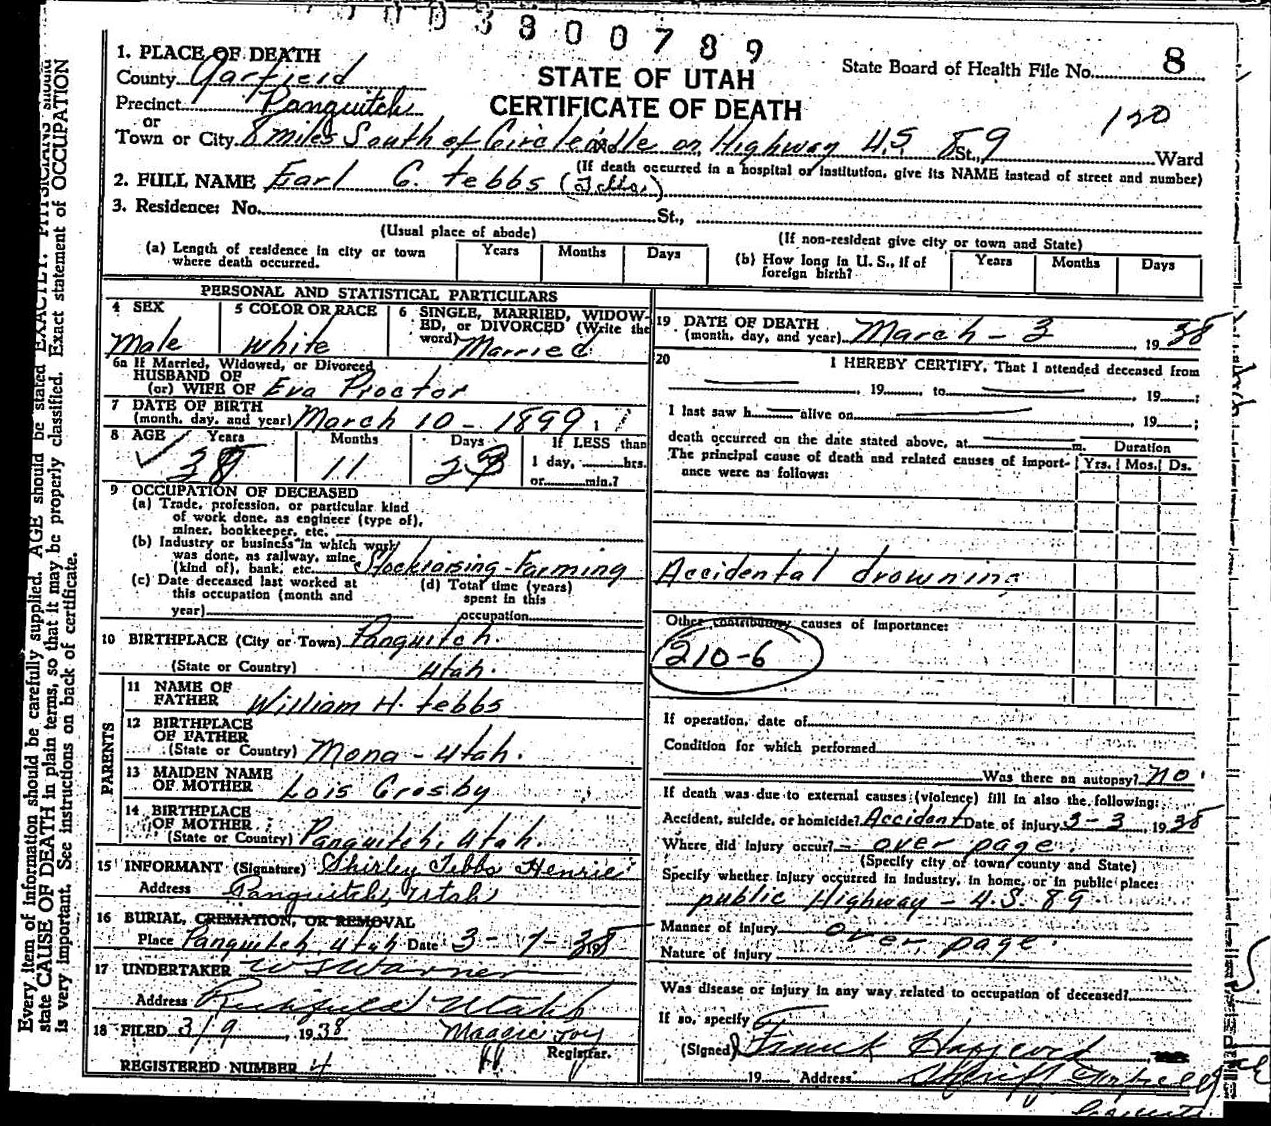 0003800789
8
1. PLACE OF DEATH
STATE OF UTAH
State Board of Health File No.
County Garfield
CERTIFICATE OF DEATH
Precinct Panguitch
120
or
Town or City 8 miles South of Circleville on Highway U.S. 89 St., Ward
(If death occurred in a hospital or institution, give its NAME instead of street and number)
2. FULL NAME Earl C. Tebbs (Tebbs)
3. Residence: No. St.,
(Usual place of abode) (If non-resident give city or town and State)
(a) Length of residence in city or town where death occurred. Years Months Days
(b) How long in U. S., if of foreign birth? Years Months Days
PERSONAL AND STATISTICAL PARTICULARS
4 SEX
Male
5 COLOR OR RACE
White
6 SINGLE, MARRIED, WIDOW-
ED, or DIVORCED (Write the
word) Married
6a If Married, Widowed, or Divorced
HUSBAND OF
(or) WIFE OF Eva Proctor
7 DATE OF BIRTH
(month, day, and year) March 10 - 1899
8 AGE Years Months Days If LESS than
38 11 1 day, hrs.
or min.?
9 OCCUPATION OF DECEASED
(a) Trade, profession, or particular kind
of work done, as engineer (type of),
miner, bookkeeper, etc.
(b) Industry or business in which work
was done, as railway, mine
(kind of), bank, etc. Stockraising-Farming
(c) Date deceased last worked at
this occupation (month and
year)
(d) Total time (years)
spent in this
occupation
10 BIRTHPLACE (City or Town) Panguitch.
(State or Country) Utah.
PARENTS
11 NAME OF
FATHER William H. Tebbs
12 BIRTHPLACE
OF FATHER
(State or Country) Mona - Utah.
13 MAIDEN NAME
OF MOTHER Lois Crosby
14 BIRTHPLACE
OF MOTHER
(State or Country) Panguitch, Utah.
15 INFORMANT (Signature) Shirley Tebbs Henrie
Address Panguitch, Utah
16 BURIAL, CREMATION, OR REMOVAL
Place Panguitch Utah Date 3-7-38
17 UNDERTAKER W S Warner
Address Richfield Utah
18 FILED 3/9, 1938 Maggie Foy
Registrar.
REGISTERED NUMBER 4
19 DATE OF DEATH
(month, day, and year) March - 3, 1938
20 I HEREBY CERTIFY, That I attended deceased from
, 19 to , 19 ;
I last saw h alive on , 19 ;
death occurred on the date stated above, at m.
Duration
The principal cause of death and related causes of import-
ance were as follows:
Yrs. Mos. Ds.
Accidental drowning
Other contributory causes of importance:
210-6
If operation, date of
Condition for which performed
Was there an autopsy? no.
If death was due to external causes (violence) fill in also the following:
Accident, suicide, or homicide? Accident Date of injury 3-3, 1938
Where did injury occur? - over page.
(Specify city or town, county and State)
Specify whether injury occurred in industry, in home, or in public place:
public Highway - U.S. 89
Manner of injury over page.
Nature of injury
Was disease or injury in any way related to occupation of deceased?
If so, specify
(Signed) Frank Haycock
19 Address Sheriff Garfield
County
Every item of information should be carefully supplied. AGE should be stated EXACTLY. PHYSICIANS should
state CAUSE OF DEATH in plain terms, so that it may be properly classified. Exact statement of OCCUPATION
is very important. See instructions on back of certificate.